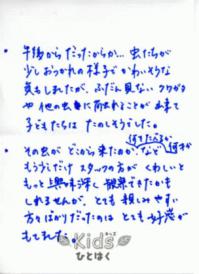 ・午後からだったからか… 虫たちが
少しおつかれの様子でかわいそうな
気もしましたが、ふだん見ないクワガタ
や他の虫に触れることが出来て
子どもたちはたのしそうでした。
・その虫がどこから来たのか、など
何を たべるか
何才か
もう少しだけスタッフの方がくわしいと
もっと興味深く観察できたかも
しれませんが、とても親しみやすい
方々ばかりだったのはとても好感が
もてました。
Kids
キッズ
ひとはく